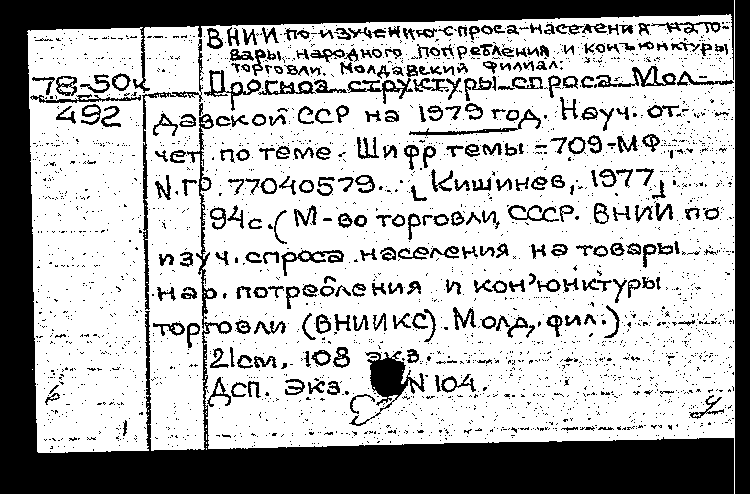 ВНИИ по изучению спроса населения на то-
вары народного потребления и конъюнктуры
торговли. Молдавский филиал.
78-50к Прогноз структуры спроса Мол-
492 давской ССР на 1979 год. Науч. от-
чет по теме. Шифр темы -709-МФ,
N.ГР.77040579. [Кишинев, 1977].
94с. (М-во торговли СССР. ВНИИ по
изуч. спроса населения на товары
нар. потребления и кон'юнктуры
торговли (ВНИИКС). Молд. фил.)
21см. 108 экз.
Дсп. Экз. N 104.
6
1